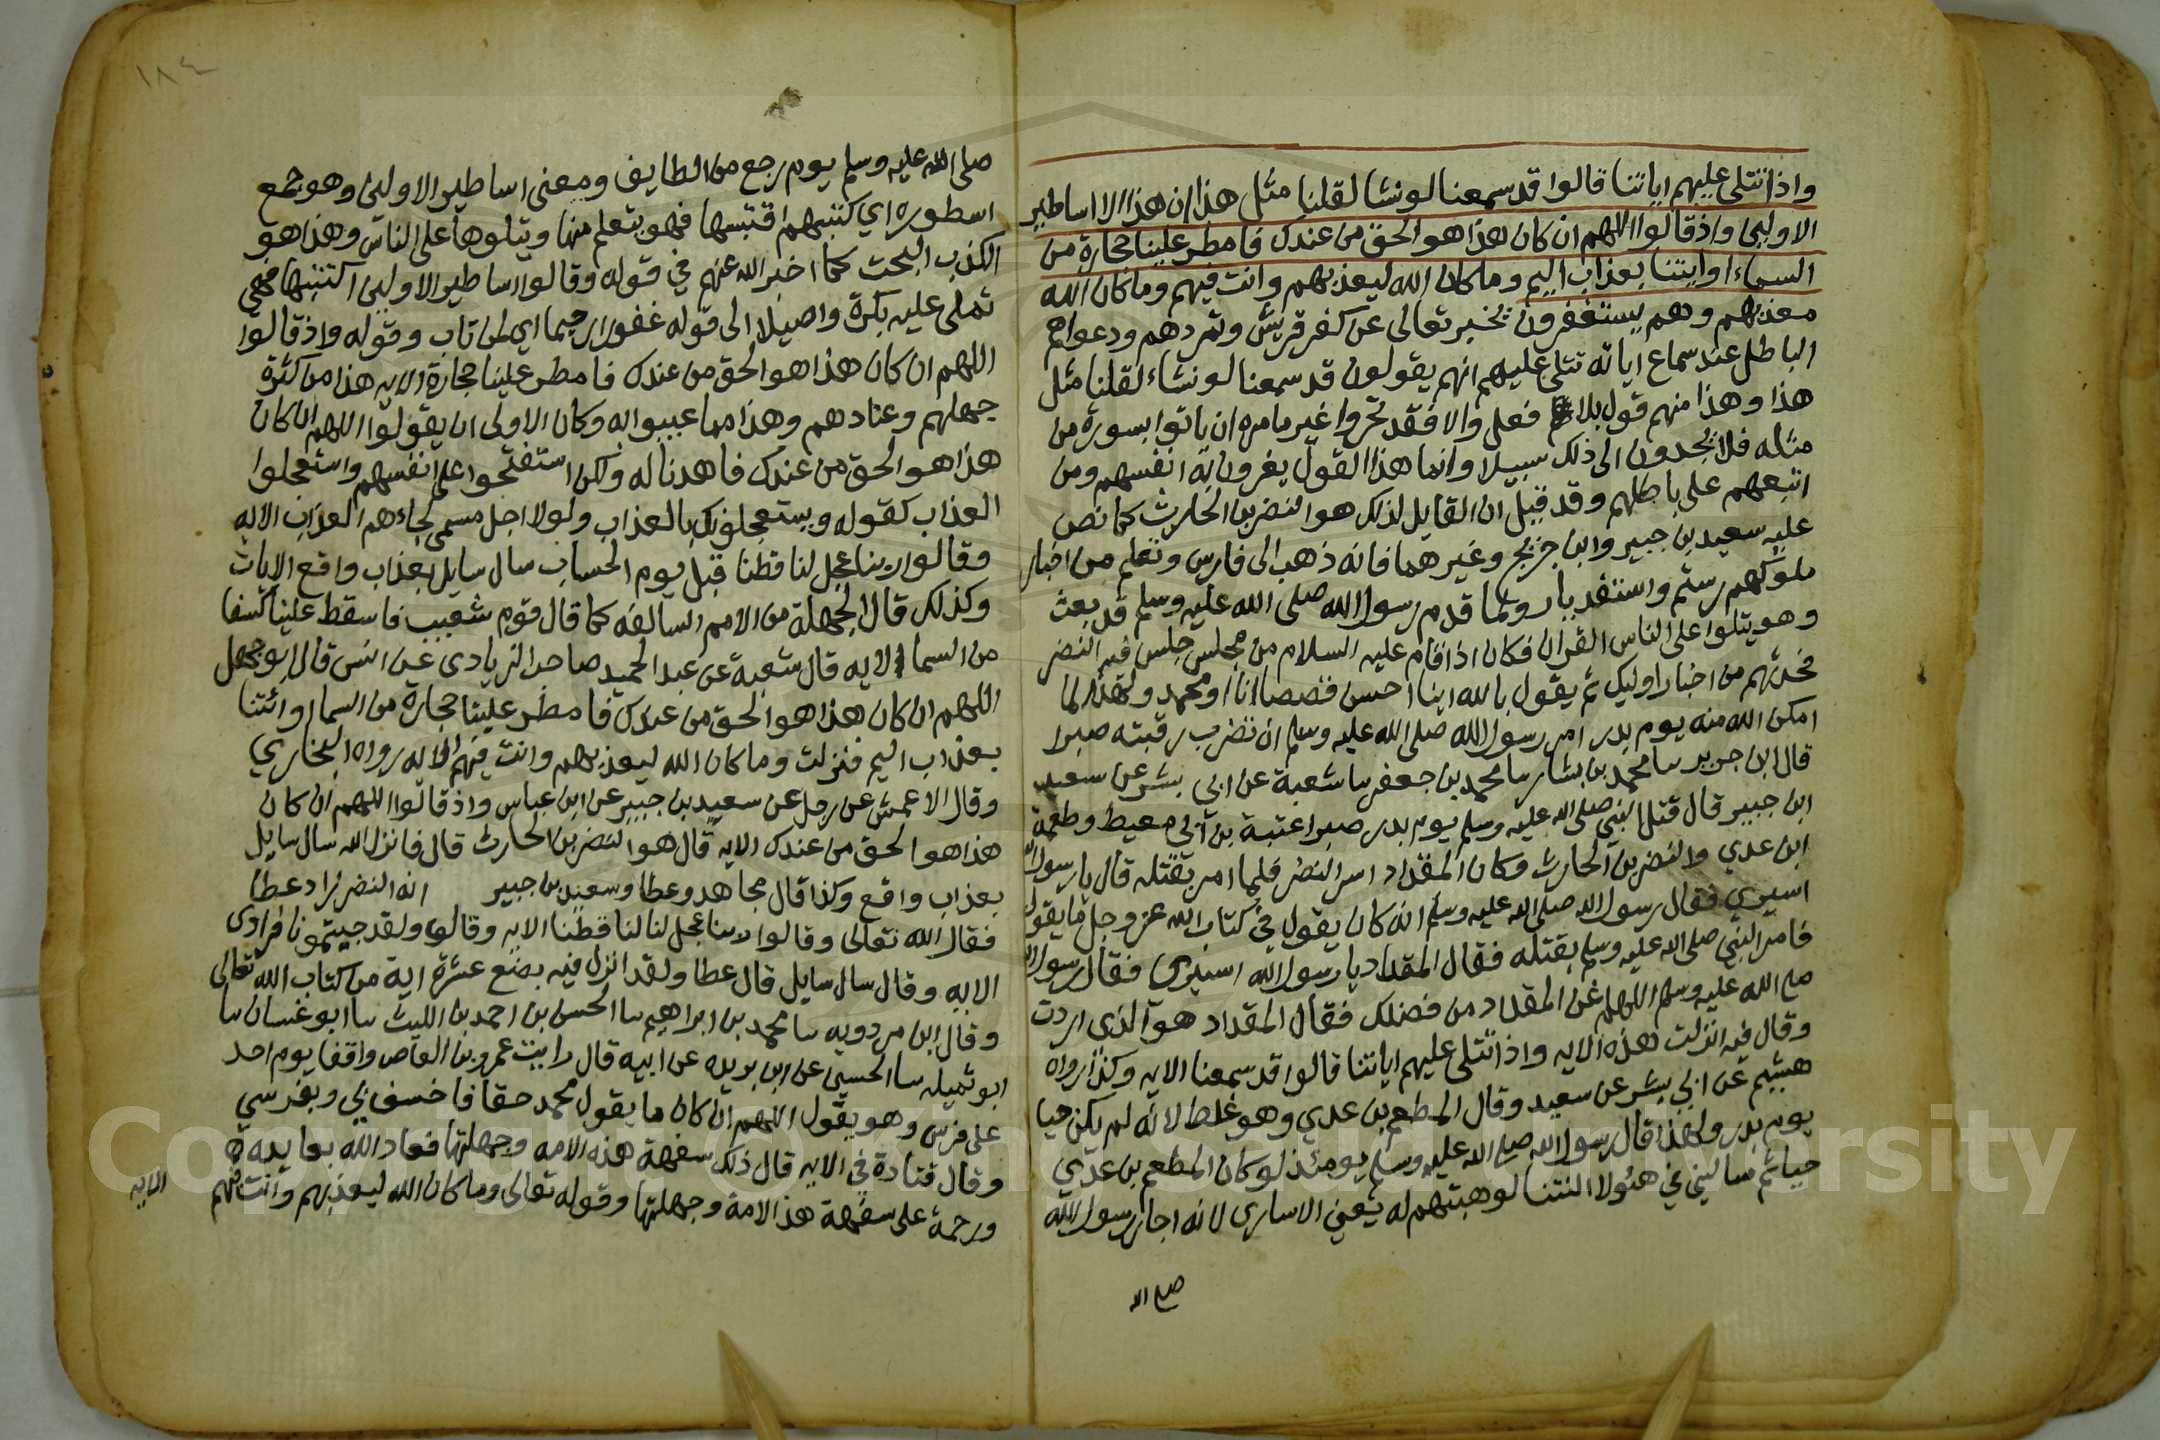 واذا تتلى عليهم اياتنا قالوا قد سمعنا لو نشا لقلنا مثل هذا ان هذا الا اساطير
الاولين واذ قالوا اللهم ان كان هذا هو الحق من عندك فامطر علينا حجارة من
السماء او ايتنا بعذاب اليم وما كان الله ليعذبهم وانت فيهم وما كان الله
معذبهم وهم يستغفرون يخبر تعالى عن كفر قريش وتمردهم ودعواهم
الباطل عند سماع اياته تتلى عليهم انهم يقولون قد سمعنا لو نشاء لقلنا مثل
هذا وهذا منهم قول بلا فعل والا فقد تحروا غير ما مره ان ياتوا بسورة من
مثله فلا يجدون الى ذلك سبيلا وانما هذا القول يغرون به انفسهم ومن
اتبعهم على باطلهم وقد قيل ان القايل لذلك هو النضر بن الحارث كما نص
عليه سعيد بن جبير وابن جريج وغيرهما فانه ذهب الى فارس وتعلم من اخبار
ملوكهم رستم واسفنديار ولما قدم رسول الله صلى الله عليه وسلم قد بعث
وهو يتلوا على الناس القران فكان اذا قام عليه السلام من مجلس جلس فيه النضر
فحدثهم من اخبار اوليك ثم يقول بالله اينا احسن قصصا انا او محمد ولهذا لما
امكن الله منه يوم بدر امر رسول الله صلى الله عليه وسلم ان تضرب رقبته صبرا
قال ابن جرير سا محمد بن بشار سا محمد بن جعفر سا شعبة عن ابي بشر عن سعيد
ابن جبير قال قتل النبي صلى الله عليه وسلم يوم بدر صبرا عتبة بن ابي معيط وطعيمة
ابن عدي والنضر بن الحارث وكان المقداد اسر النضر فلما امر بقتله قال يا رسول الله
اسيري فقال رسول الله صلى الله عليه وسلم انه كان يقول في كتاب الله عز وجل ما يقول
فامر النبي صلى الله عليه وسلم بقتله فقال المقداد يا رسول الله اسيري فقال رسول الله
صلى الله عليه وسلم اللهم اغن المقداد من فضلك فقال المقداد هو الذي اردت
وقال فيه انزلت هذه الايه واذا تتلى عليهم اياتنا قالوا قد سمعنا الايه وكذا رواه
هشيم عن ابي بشر عن سعيد وقال المطعم بن عدي وهو غلط لانه لم يكن حيا
يوم بدر ولهذا قال رسول الله صلى الله عليه وسلم يومئذ لو كان المطعم بن عدي
حيا ثم سالني في هئولا النتنا لوهبتهم له يعني الاسارى لانه اجار رسول الله
صلى الله
١٨٤
صلى الله عليه وسلم يوم رجع من الطايف ومعنى اساطير الاولين وهو جمع
اسطوره اي كتبهم اقتبسها فهو يتعلم منها ويتلوها على الناس وهذا هو
الكذب البحت كما اخبر الله عنهم في قوله وقالوا اساطير الاولين اكتتبها فهي
تملى عليه بكرة واصيلا الى قوله غفورا رحيما اي لمن تاب وقوله واذ قالوا
اللهم ان كان هذا هو الحق من عندك فامطر علينا حجارة الايه هذا من كثرة
جهلهم وعنادهم وهذا مما عيبوا به وكان الاولى ان يقولوا اللهم ان كان
هذا هو الحق من عندك فاهدنا له ولكن استفتحوا على انفسهم واستعجلوا
العذاب كقوله ويستعجلونك بالعذاب ولولا اجل مسمى لجاءهم العذاب الايه
وقالوا ربنا عجل لنا قطنا قبل يوم الحساب سال سايل بعذاب واقع الايات
وكذلك قال الجهلة من الامم السالفه كما قال قوم شعيب فاسقط علينا كسفا
من السما الايه قال شعبة عن عبد الحميد صاحد الزيادى عن انس قال ابو جهل
اللهم ان كان هذا هو الحق من عندك فامطر علينا حجارة من السما او ائتنا
بعذاب اليم فنزلت وما كان الله ليعذبهم وانت فيهم الايه رواه البخاري
وقال الاعمش عن رجل عن سعيد بن جبير عن ابن عباس واذ قالوا اللهم ان كان
هذا هو الحق من عندك الايه قال هو النضر بن الحارث قال فانزل الله سال سايل
بعذاب واقع وكذا قال مجاهد وعطا وسعيد بن جبير انه النضر زاد عطا
فقال الله تعالى وقالوا ربنا عجل لنا لنا قطنا الايه وقالوا ولقد جيتمونا فرادى
الايه وقال سال سايل قال عطا ولقد انزل فيه بضع عشرة اية من كتاب الله تعالى
وقال ابن مردويه سا محمد بن ابراهيم سا الحسن بن احمد بن الليث سا ابو غسان سا
ابو تميله سا الحسين عن ابن بريده عن ابيه قال رايت عمرو بن العاص واقفا يوم احد
على فرس وهو يقول اللهم ان كان ما يقول محمد حقا فاخسف بي وبفرسي
وقال قتادة في الايه قال ذلك سفهة هذه الامه وجهلتها فعاد الله بعايدته
ورحمة على سفهة هذ الامة وجهلتها وقوله تعالى وما كان الله ليعذبهم وانت فيهم
الايه